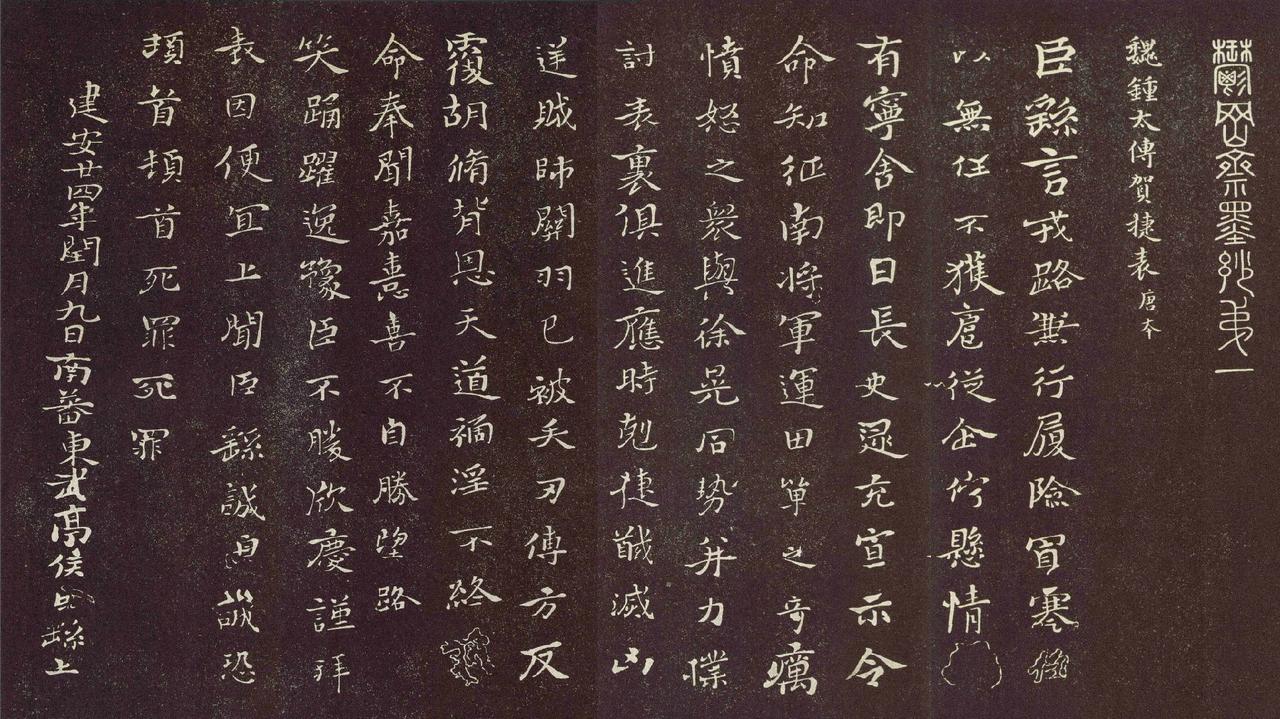 鬱岡齋墨妙第一
魏鍾太傅賀捷表唐本
臣繇言戎路兼行履險冒寒臣
以無任不獲扈從企佇懸情
有寧舍即日長史逯充宣示令
命知征南將軍運田單之奇癘
憤怒之眾與徐晃同勢并力撲
討表裏俱進應時剋捷馘滅凶
逆賊帥關羽已被矢刃傅方反
覆胡脩背恩天道禍淫不終
命奉聞嘉憙喜不自勝望路
笑踊躍逸豫臣不勝欣慶謹拜
表因便宜上聞臣繇誠皇誠恐
頓首頓首死罪死罪
建安廿四年閏月九日南蕃東武亭侯臣繇上